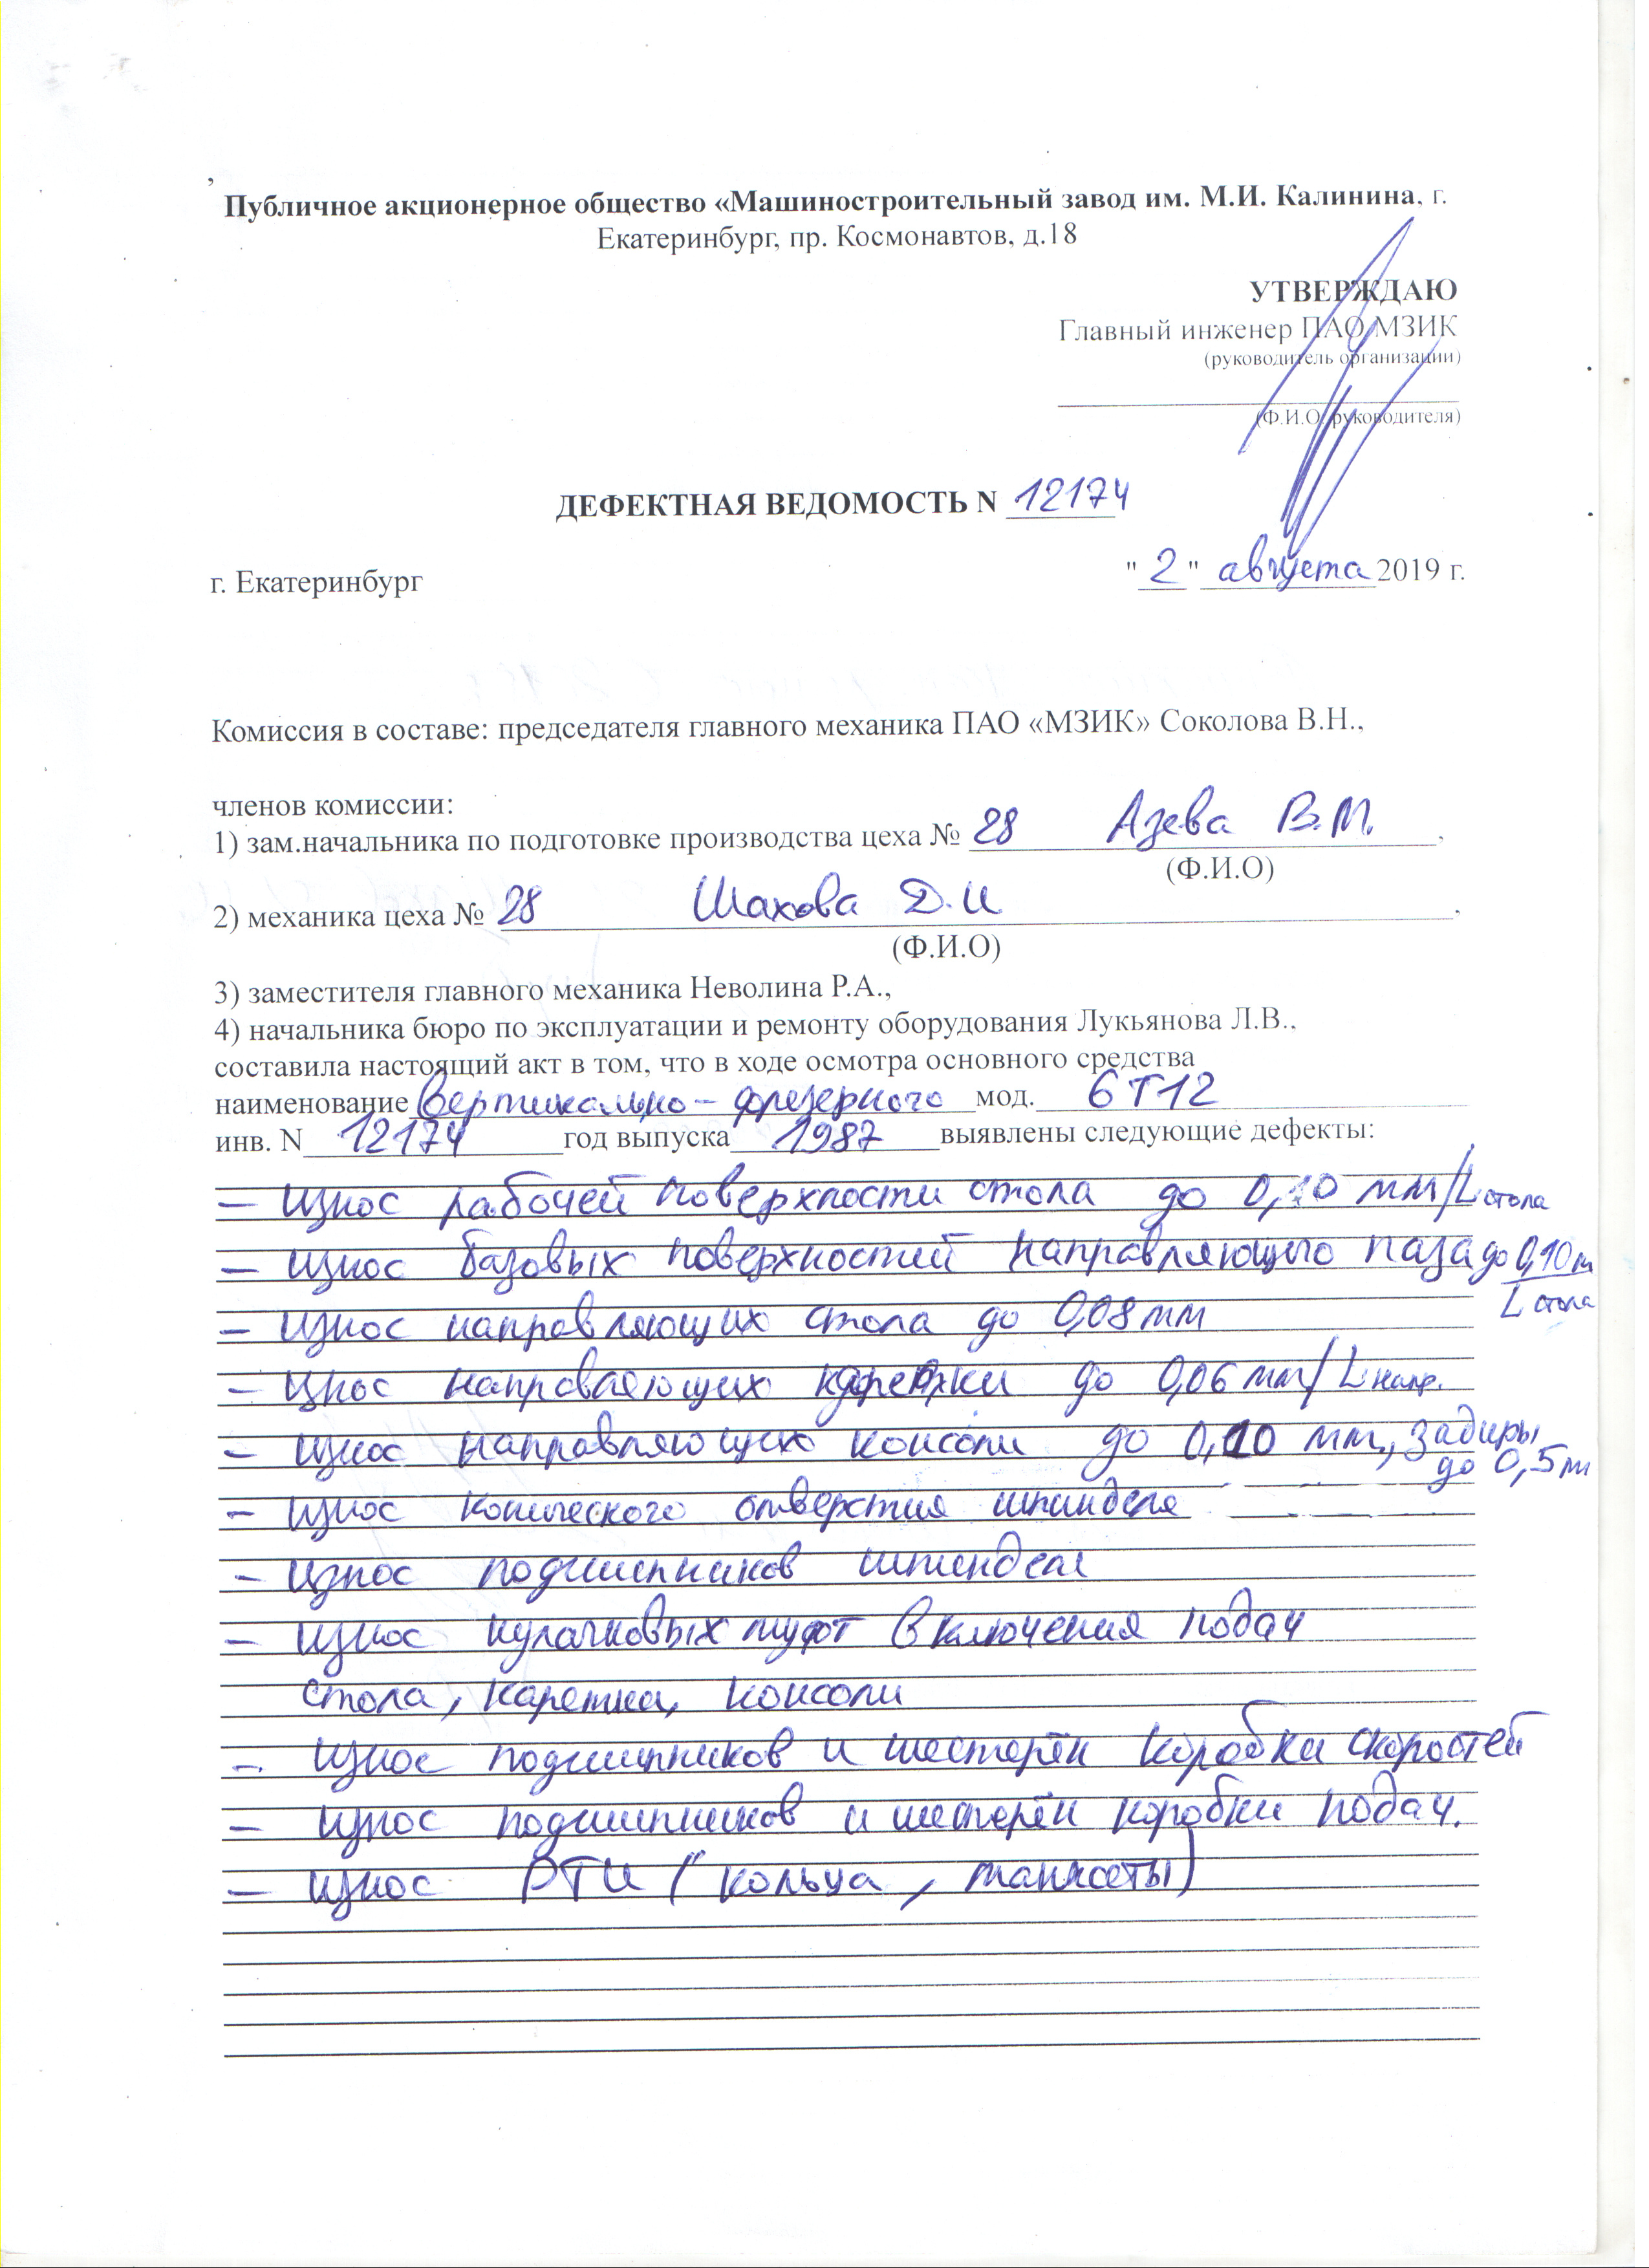 Публичное акционерное общество «Машиностроительный завод им. М.И. Калинина, г.
Екатеринбург, пр. Космонавтов, д.18
УТВЕРЖДАЮ
Главный инженер ПАО МЗИК
(руководитель организации)
(Ф.И.О. руководителя)
ДЕФЕКТНАЯ ВЕДОМОСТЬ N 12174
г. Екатеринбург "2" августа 2019 г.
Комиссия в составе: председателя главного механика ПАО «МЗИК» Соколова В.Н.,
членов комиссии:
1) зам.начальника по подготовке производства цеха № 28 Азева В.М.,
(Ф.И.О)
2) механика цеха № 28 Шахова Д.И.
(Ф.И.О)
3) заместителя главного механика Неволина Р.А.,
4) начальника бюро по эксплуатации и ремонту оборудования Лукьянова Л.В.,
составила настоящий акт в том, что в ходе осмотра основного средства
наименование вертикально-фрезерного мод. 6Т12
инв. N 12174 год выпуска 1987 выявлены следующие дефекты:
– Износ рабочей поверхности стола до 0,10 мм/L стола
– Износ базовых поверхностей направляющего паза до 0,10 м
L стола
– Износ направляющих стола до 0,08 мм
– Износ направляющих каретки до 0,06 мм/L напр.
– Износ направляющих консоли до 0,10 мм, задиры
до 0,5 мм
– Износ конического отверстия шпинделя
– Износ подшипников шпинделя
– Износ кулачковых муфт включения подач
стола, каретки, консоли
– Износ подшипников и шестерён коробки скоростей
– Износ подшипников и шестерён коробки подач.
– Износ РТИ (кольца, манжеты)